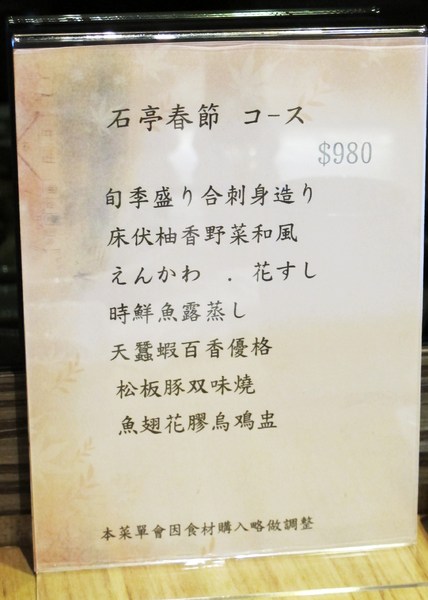 石亭春節 コース
$980
旬季盛り合刺身造り
床伏柚香野菜和風
えんかわ . 花すし
時鮮魚露蒸し
天蠶蝦百香優格
松板豚双味燒
魚翅花膠烏鴉盅
本菜單會因食材購入略做調整